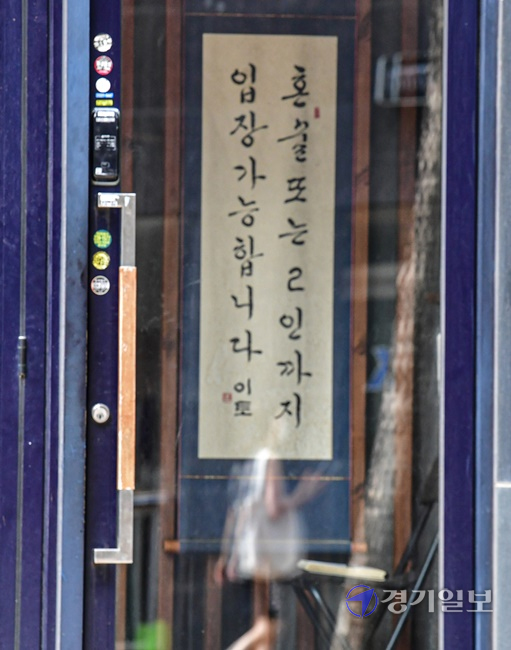 혼술또는2인까지
입장가능합니다
이토
경기일보